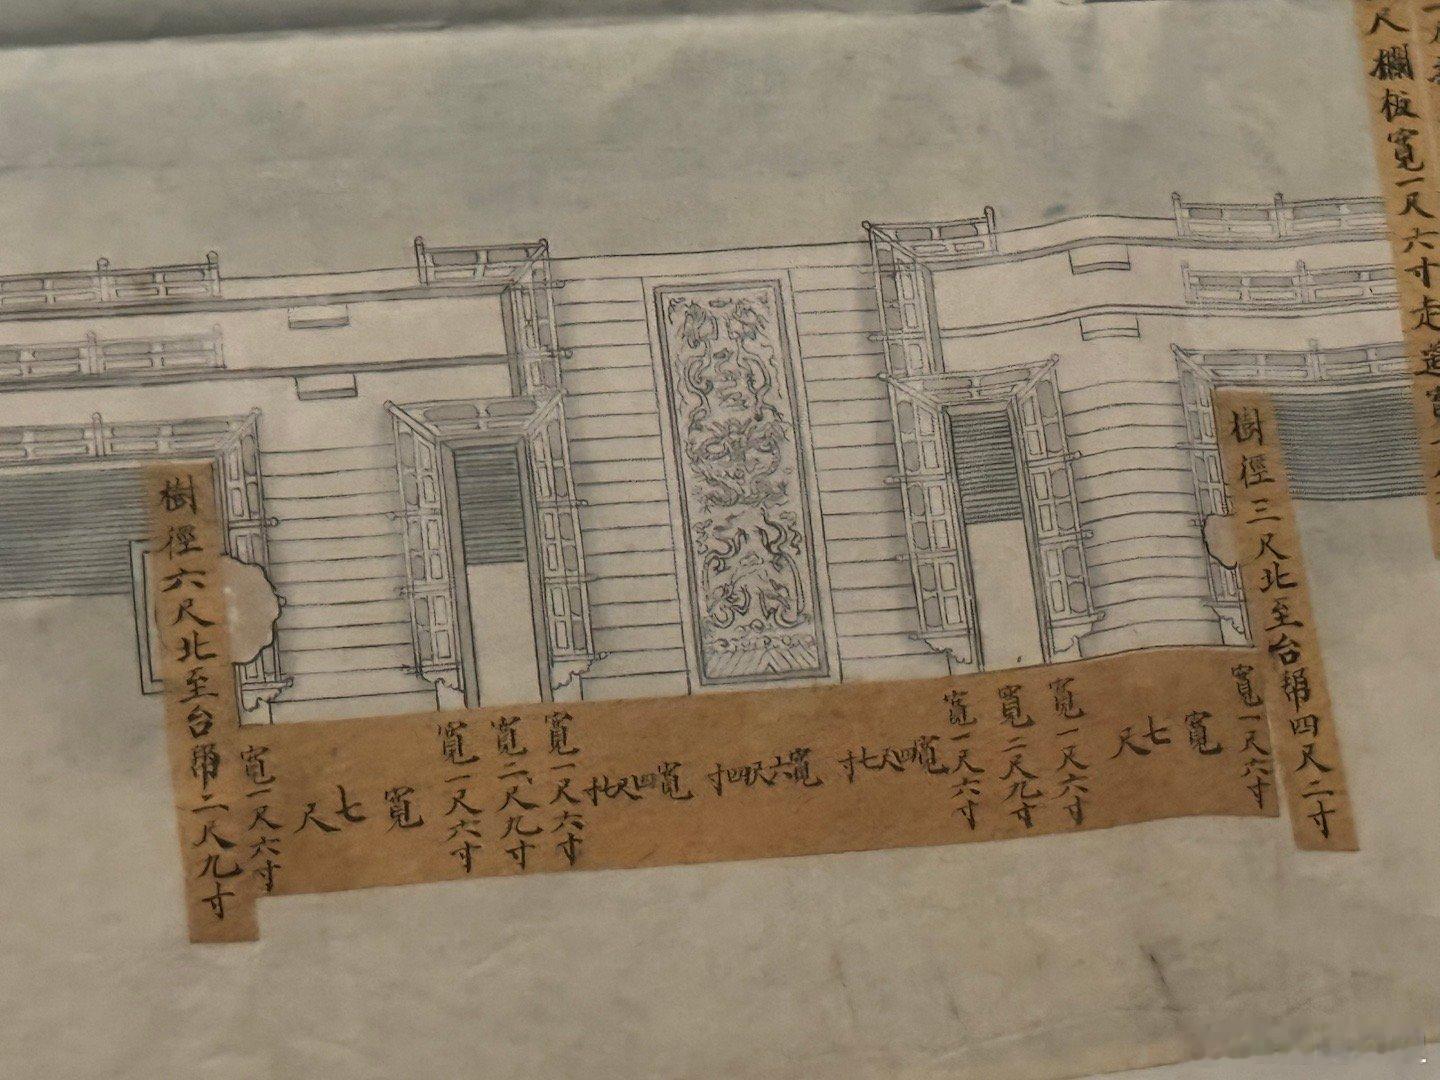 樹徑六尺北至台帮二尺九寸
寬一尺六寸
寬七尺
寬一尺六寸
寬二尺九寸
寬一尺六寸
寬四尺七寸
寬六尺四寸
寬四尺七寸
寬一尺六寸
寬二尺九寸
寬一尺六寸
寬七尺
寬一尺六寸
樹徑三尺北至台帮四尺二寸
尺欄板寬一尺六寸走道寬